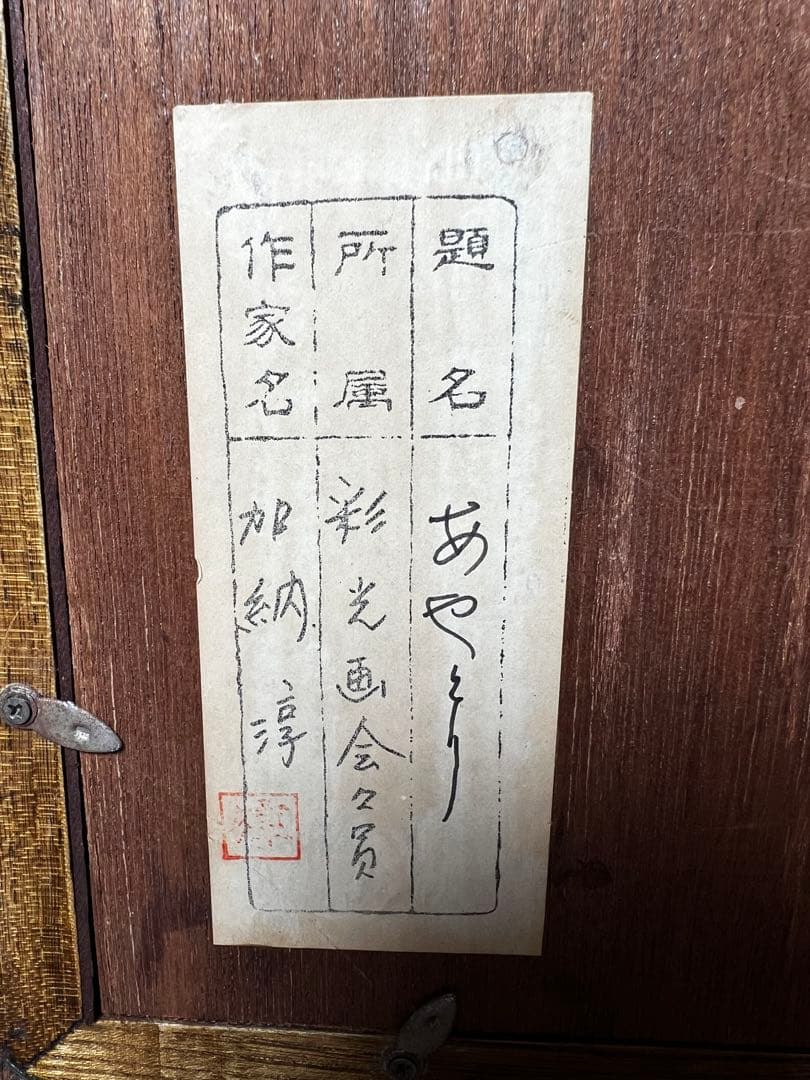 題名 あやとり
所属 彩光画会々員
作家名 加納淳